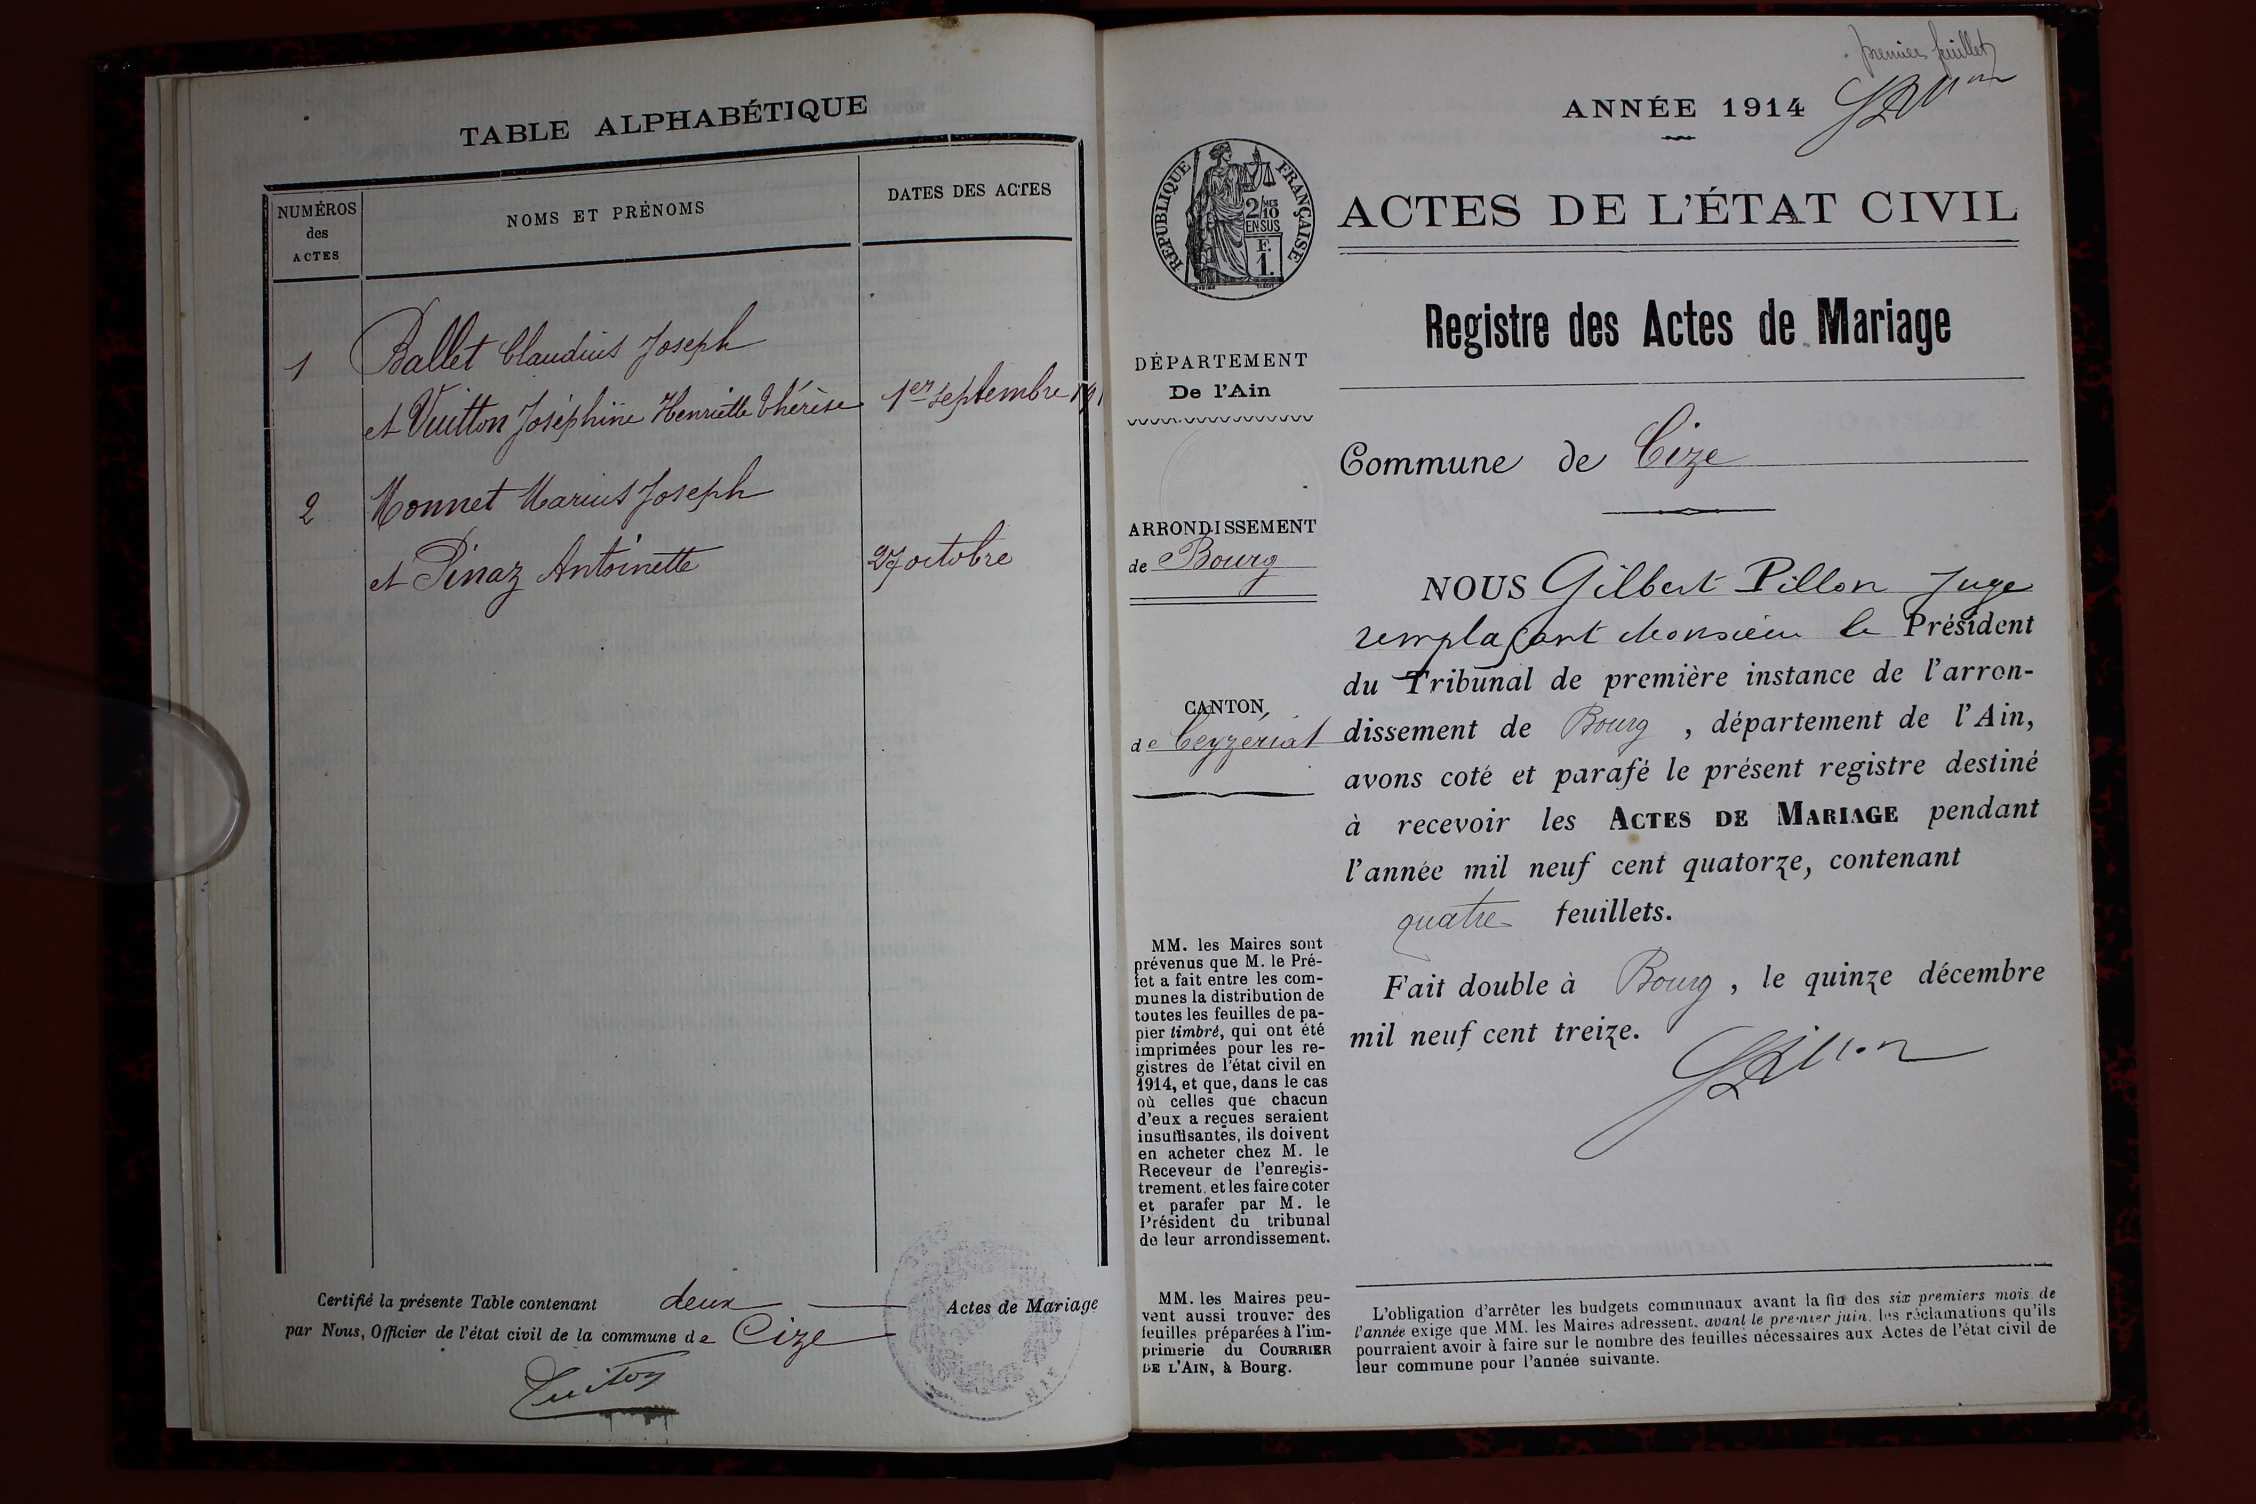 TABLE ALPHABÉTIQUE
NUMÉROS
des
ACTES
NOMS ET PRÉNOMS
DATES DES ACTES
1 Ballet Claudius Joseph
et Vuitton Joséphine Henriette Thérèse 1er septembre 191
2 Monnet Marius Joseph
et Pinaz Antoinette 27 octobre
Certifié la présente Table contenant deux Actes de Mariage
par Nous, Officier de l'état civil de la commune de Cize
Vuitton
premier feuillet
ANNÉE 1914
RÉPUBLIQUE FRANÇAISE
2/10
EN SUS
F.
1.
ACTES DE L'ÉTAT CIVIL
Registre des Actes de Mariage
DÉPARTEMENT
De l'Ain
ARRONDISSEMENT
de Bourg
CANTON
de Ceyzériat
MM. les Maires sont
prévenus que M. le Pré-
fet a fait entre les com-
munes la distribution de
toutes les feuilles de pa-
pier timbré, qui ont été
imprimées pour les re-
gistres de l'état civil en
1914, et que, dans le cas
où celles que chacun
d'eux a reçues seraient
insuffisantes, ils doivent
en acheter chez M. le
Receveur de l'enregis-
trement, et les faire coter
et parafer par M. le
Président du tribunal
de leur arrondissement.
MM. les Maires peu-
vent aussi trouver des
feuilles préparées à l'im-
primerie du COURRIER
DE L'AIN, à Bourg.
Commune de Cize
NOUS Gilbert Pillon Juge
remplaçant Monsieur le Président
du Tribunal de première instance de l'arron-
dissement de Bourg, département de l'Ain,
avons coté et parafé le présent registre destiné
à recevoir les ACTES DE MARIAGE pendant
l'année mil neuf cent quatorze, contenant
quatre feuillets.
Fait double à Bourg, le quinze décembre
mil neuf cent treize.
L'obligation d'arrêter les budgets communaux avant la fin des six premiers mois de
l'année exige que MM. les Maires adressent, avant le premier juin, les réclamations qu'ils
pourraient avoir à faire sur le nombre des feuilles nécessaires aux Actes de l'état civil de
leur commune pour l'année suivante.